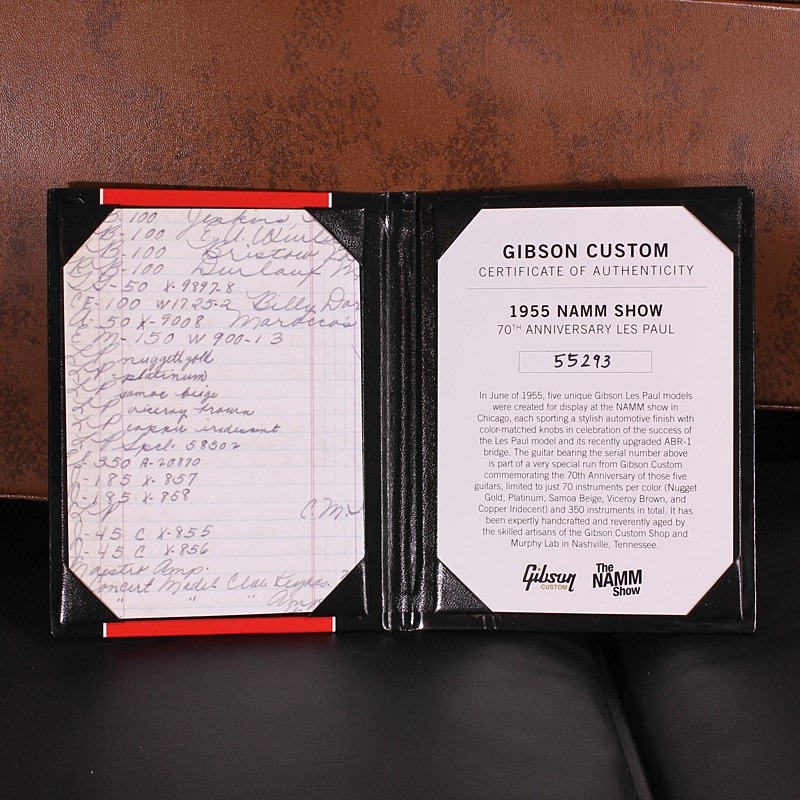 100 Jenkins
B-100 E.U. Wurli
B-100 Bristow
B-100 Durlauf M
-50 X-9897-8
CE-100 W1725-2 Billy Dor
-50 X-9008 Marocco's
E M-150 W 900-13
LP nuggett gold
LP platinum
LP samoe beige
LP viceroy brown
LP copper iridescent
LP Spcl. 58502
350 A-20870
-185 X-857
-185 X-858
C M.
-45 C X-855
-45 C X-856
Maestro Amp.
oncert Model Clav
" " Amp
GIBSON CUSTOM
CERTIFICATE OF AUTHENTICITY
1955 NAMM SHOW
70TH ANNIVERSARY LES PAUL
55293
In June of 1955, five unique Gibson Les Paul models
were created for display at the NAMM show in
Chicago, each sporting a stylish automotive finish with
color-matched knobs in celebration of the success of
the Les Paul model and its recently upgraded ABR-1
bridge. The guitar bearing the serial number above
is part of a very special run from Gibson Custom
commemorating the 70th Anniversary of those five
guitars, limited to just 70 instruments per color (Nugget
Gold, Platinum, Samoa Beige, Viceroy Brown, and
Copper Iridecent) and 350 instruments in total. It has
been expertly handcrafted and reverently aged by
the skilled artisans of the Gibson Custom Shop and
Murphy Lab in Nashville, Tennessee.
Gibson
CUSTOM
The
NAMM
Show